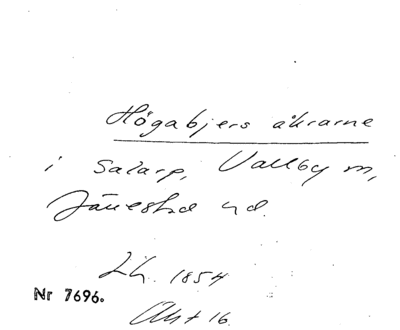 Högabjers åkrarne
i Salarp, Vallby sn,
Järrestad hd.
Lh. 1854
Nr 7696.
Akt 16